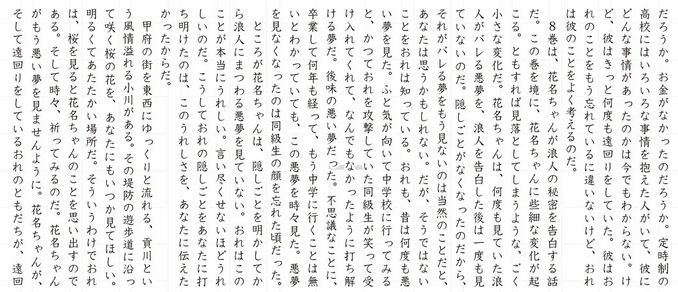 だろうか。お金がなかったのだろうか。定時制の
高校にはいろいろな事情を抱えた人がいて、彼に
どんな事情があったのかは今でもわからない。け
ど、彼はきっと何度も遠回りをしていた。彼はお
れのことをもう忘れているに違いないけど、おれ
は彼のことをよく考えるのだ。
8巻は、花名ちゃんが浪人の秘密を告白する話
だ。この巻を境に、花名ちゃんに些細な変化が起
こる。ともすれば見落としてしまうような、ごく
小さな変化だ。花名ちゃんは、何度も見ていた浪
人がバレる悪夢を、浪人を告白した後は一度も見
ていないのだ。隠しごとがなくなったのだから、
それがバレる夢をもう見ないのは当然のことだと、
あなたは思うかもしれない。だが、そうではない
ことをおれは知っている。おれも、昔は何度も悪
い夢を見た。ふと気が向いて中学校に行ってみる
と、かつておれを攻撃していた同級生が笑って受
け入れてくれて、なんでもなかったように打ち解
ける夢だ。後味の悪い夢だった。不思議なことに、
卒業して何年も経って、もう中学に行くことは無
いとわかっていても、この悪夢を時々見た。悪夢
を見なくなったのは同級生の顔を忘れた頃だった。
ところが花名ちゃんは、隠しごとを明かしてか
ら浪人にまつわる悪夢を見ていない。おれはこの
ことが本当にうれしい。言い尽くせないほどうれ
しいのだ。こうしておれの隠しごとをあなたに打
ち明けたのは、このうれしさを、あなたに伝えた
かったからだ。
甲府の街を東西にゆっくりと流れる、貢川とい
う風情溢れる小川がある。その堤防の遊歩道に沿っ
て咲く桜の花を、あなたにもいつか見てほしい。
明るくてあたたかい場所だ。そういうわけでおれ
は、桜を見ると花名ちゃんのことを思い出すので
ある。そして時々、祈ってみるのだ。花名ちゃん
がもう悪い夢を見ませんように。花名ちゃんが、
そして遠回りをしているおれのともだちが、遠回